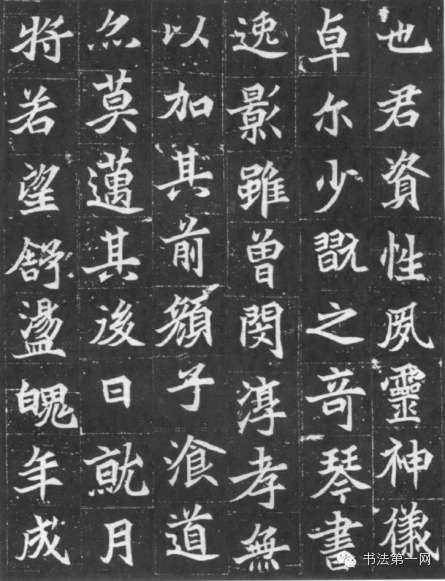 也君資性夙靈神儀
卓尔少翫之竒琴書
逸影雖曾閔淳孝無
以加其前顏子湌道
亦莫邁其後日就月
將若望舒盪魄年成
书法第一网